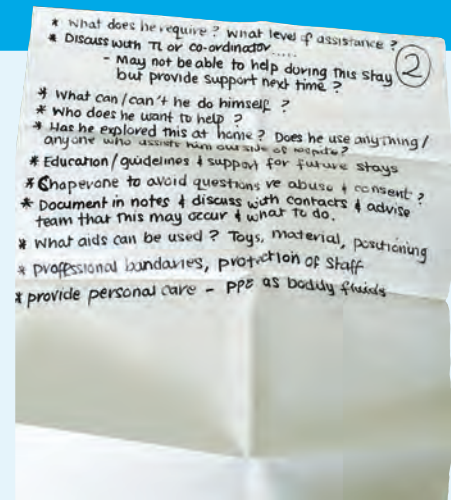 * What does he require? What level of assistance?
* Discuss with TL or co-ordinator.....
- May not be able to help during this stay
but provide support next time?
②
* What can/can't he do himself?
* Who does he want to help?
* Has he explored this at home? Does he use anything/
anyone who assists him outside of respite?
* Education/guidelines & support for future stays
* Chaperone to avoid questions re abuse & consent?
* Document in notes & discuss with contacts & advise
team that this may occur & what to do.
* What aids can be used? Toys, material, positioning
* proffssional bundaries, protection of staff
* provide personal care - PPE as bodily fluids